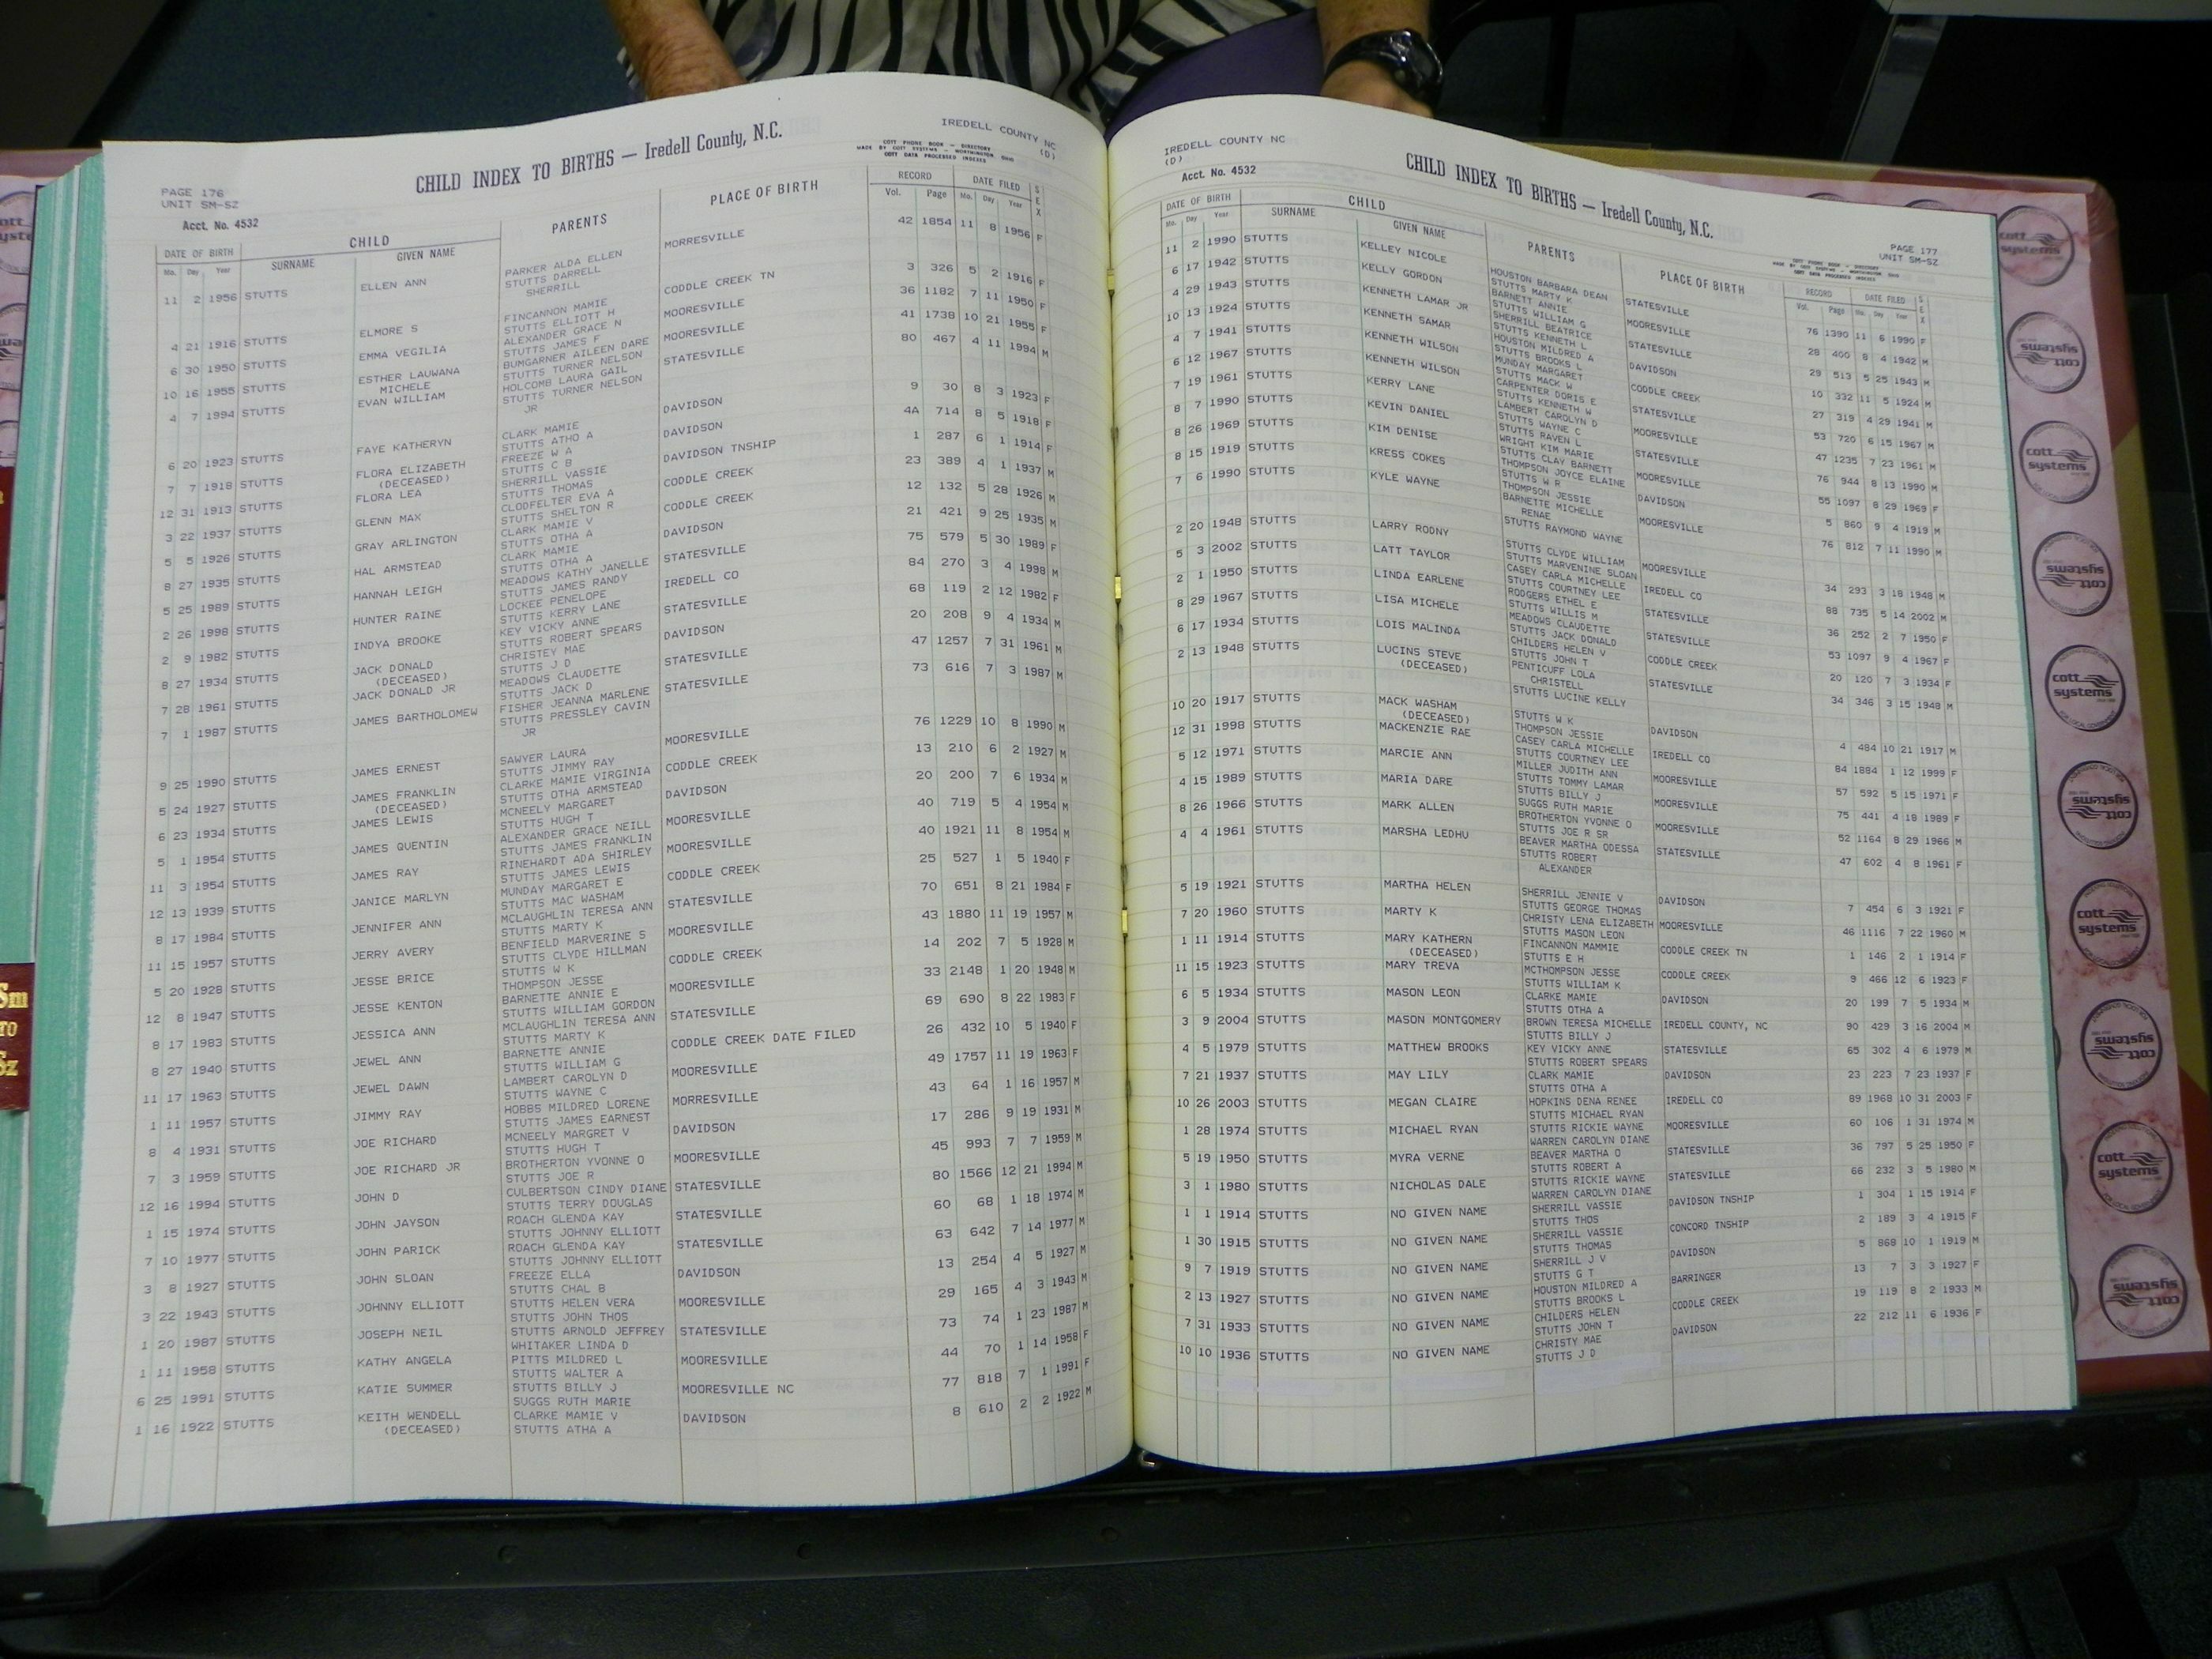 PAGE 176
UNIT SM-SZ
CHILD INDEX TO BIRTHS — Iredell County, N.C.
IREDELL COUNTY NC
(D)
COTT PHONE BOOK — DIRECTORY
MADE BY COTT SYSTEMS — WORTHINGTON, OHIO
COTT DATA PROCESSED INDEXES
Acct. No. 4532
DATE OF BIRTH CHILD PARENTS PLACE OF BIRTH RECORD DATE FILED SEX
Mo. Day Year SURNAME GIVEN NAME Vol. Page Mo. Day Year
11 2 1956 STUTTS ELLEN ANN PARKER ALDA ELLEN MORRESVILLE 42 1854 11 8 1956 F
STUTTS DARRELL
SHERRILL
4 21 1916 STUTTS ELMORE S FINCANNON MAMIE CODDLE CREEK TN 3 326 5 2 1916 F
STUTTS ELLIOTT H
6 30 1950 STUTTS EMMA VEGILIA ALEXANDER GRACE N MOORESVILLE 36 1182 7 11 1950 F
STUTTS JAMES F
10 16 1955 STUTTS ESTHER LAUWANA BUMGARNER AILEEN DARE MOORESVILLE 41 1738 10 21 1955 F
MICHELE STUTTS TURNER NELSON
4 7 1994 STUTTS EVAN WILLIAM HOLCOMB LAURA GAIL STATESVILLE 80 467 4 11 1994 M
STUTTS TURNER NELSON
JR
6 20 1923 STUTTS FAYE KATHERYN CLARK MAMIE DAVIDSON 9 30 8 3 1923 F
STUTTS ATHO A
7 7 1918 STUTTS FLORA ELIZABETH FREEZE W A DAVIDSON 4A 714 8 5 1918 F
(DECEASED) STUTTS C B
12 31 1913 STUTTS FLORA LEA SHERRILL VASSIE DAVIDSON TNSHIP 1 287 6 1 1914 F
STUTTS THOMAS
3 22 1937 STUTTS GLENN MAX CLODFELTER EVA A CODDLE CREEK 23 389 4 1 1937 M
STUTTS SHELTON R
5 5 1926 STUTTS GRAY ARLINGTON CLARK MAMIE V CODDLE CREEK 12 132 5 28 1926 M
STUTTS OTHA A
8 27 1935 STUTTS HAL ARMSTEAD CLARK MAMIE DAVIDSON 21 421 9 25 1935 M
STUTTS OTHA A
5 25 1989 STUTTS HANNAH LEIGH MEADOWS KATHY JANELLE STATESVILLE 75 579 5 30 1989 F
STUTTS JAMES RANDY
2 26 1998 STUTTS HUNTER RAINE LOCKEE PENELOPE IREDELL CO 84 270 3 4 1998 M
STUTTS KERRY LANE
2 9 1982 STUTTS INDYA BROOKE KEY VICKY ANNE STATESVILLE 68 119 2 12 1982 F
STUTTS ROBERT SPEARS
8 27 1934 STUTTS JACK DONALD CHRISTEY MAE DAVIDSON 20 208 9 4 1934 M
(DECEASED) STUTTS J D
7 28 1961 STUTTS JACK DONALD JR MEADOWS CLAUDETTE STATESVILLE 47 1257 7 31 1961 M
STUTTS JACK D
7 1 1987 STUTTS JAMES BARTHOLOMEW FISHER JEANNA MARLENE STATESVILLE 73 616 7 3 1987 M
STUTTS PRESSLEY CAVIN
JR
9 25 1990 STUTTS JAMES ERNEST SAWYER LAURA MOORESVILLE 76 1229 10 8 1990 M
STUTTS JIMMY RAY
5 24 1927 STUTTS JAMES FRANKLIN CLARKE MAMIE VIRGINIA CODDLE CREEK 13 210 6 2 1927 M
(DECEASED) STUTTS OTHA ARMSTEAD
6 23 1934 STUTTS JAMES LEWIS MCNEELY MARGARET DAVIDSON 20 200 7 6 1934 M
STUTTS HUGH T
5 1 1954 STUTTS JAMES QUENTIN ALEXANDER GRACE NEILL MOORESVILLE 40 719 5 4 1954 M
STUTTS JAMES FRANKLIN
11 3 1954 STUTTS JAMES RAY RINEHARDT ADA SHIRLEY MOORESVILLE 40 1921 11 8 1954 M
STUTTS JAMES LEWIS
12 13 1939 STUTTS JANICE MARLYN MUNDAY MARGARET E CODDLE CREEK 25 527 1 5 1940 F
STUTTS MAC WASHAM
8 17 1984 STUTTS JENNIFER ANN MCLAUGHLIN TERESA ANN STATESVILLE 70 651 8 21 1984 F
STUTTS MARTY K
11 15 1957 STUTTS JERRY AVERY BENFIELD MARVERINE S MOORESVILLE 43 1880 11 19 1957 M
STUTTS CLYDE HILLMAN
5 20 1928 STUTTS JESSE BRICE STUTTS W K CODDLE CREEK 14 202 7 5 1928 M
THOMPSON JESSE
12 8 1947 STUTTS JESSE KENTON BARNETTE ANNIE E MOORESVILLE 33 2148 1 20 1948 M
STUTTS WILLIAM GORDON
8 17 1983 STUTTS JESSICA ANN MCLAUGHLIN TERESA ANN STATESVILLE 69 690 8 22 1983 F
STUTTS MARTY K
8 27 1940 STUTTS JEWEL ANN BARNETTE ANNIE CODDLE CREEK DATE FILED 26 432 10 5 1940 F
STUTTS WILLIAM G
11 17 1963 STUTTS JEWEL DAWN LAMBERT CAROLYN D MOORESVILLE 49 1757 11 19 1963 F
STUTTS WAYNE C
1 11 1957 STUTTS JIMMY RAY HOBBS MILDRED LORENE MORRESVILLE 43 64 1 16 1957 M
STUTTS JAMES EARNEST
8 4 1931 STUTTS JOE RICHARD MCNEELY MARGRET V DAVIDSON 17 286 9 19 1931 M
STUTTS HUGH T
7 3 1959 STUTTS JOE RICHARD JR BROTHERTON YVONNE O MOORESVILLE 45 993 7 7 1959 M
STUTTS JOE R
12 16 1994 STUTTS JOHN D CULBERTSON CINDY DIANE STATESVILLE 80 1566 12 21 1994 M
STUTTS TERRY DOUGLAS
1 15 1974 STUTTS JOHN JAYSON ROACH GLENDA KAY STATESVILLE 60 68 1 18 1974 M
STUTTS JOHNNY ELLIOTT
7 10 1977 STUTTS JOHN PARICK ROACH GLENDA KAY STATESVILLE 63 642 7 14 1977 M
STUTTS JOHNNY ELLIOTT
3 8 1927 STUTTS JOHN SLOAN FREEZE ELLA DAVIDSON 13 254 4 5 1927 M
STUTTS CHAL B
3 22 1943 STUTTS JOHNNY ELLIOTT STUTTS HELEN VERA MOORESVILLE 29 165 4 3 1943 M
STUTTS JOHN THOS
1 20 1987 STUTTS JOSEPH NEIL STUTTS ARNOLD JEFFREY STATESVILLE 73 74 1 23 1987 M
WHITAKER LINDA D
1 11 1958 STUTTS KATHY ANGELA PITTS MILDRED L MOORESVILLE 44 70 1 14 1958 F
STUTTS WALTER A
6 25 1991 STUTTS KATIE SUMMER STUTTS BILLY J MOORESVILLE NC 77 818 7 1 1991 F
SUGGS RUTH MARIE
1 16 1922 STUTTS KEITH WENDELL CLARKE MAMIE V DAVIDSON 8 610 2 2 1922 M
(DECEASED) STUTTS ATHA A
IREDELL COUNTY NC
(D)
CHILD INDEX TO BIRTHS — Iredell County, N.C.
PAGE 177
UNIT SM-SZ
Acct. No. 4532
DATE OF BIRTH CHILD PARENTS PLACE OF BIRTH RECORD DATE FILED SEX
Mo. Day Year SURNAME GIVEN NAME Vol. Page Mo. Day Year
11 2 1990 STUTTS KELLEY NICOLE HOUSTON BARBARA DEAN STATESVILLE 76 1390 11 6 1990 F
STUTTS MARTY K
6 17 1942 STUTTS KELLY GORDON BARNETT ANNIE MOORESVILLE 28 400 8 4 1942 M
STUTTS WILLIAM G
4 29 1943 STUTTS KENNETH LAMAR JR SHERRILL BEATRICE STATESVILLE 29 513 5 25 1943 M
STUTTS KENNETH L
10 13 1924 STUTTS KENNETH SAMAR HOUSTON MILDRED A DAVIDSON 10 332 11 5 1924 M
STUTTS BROOKS L
4 7 1941 STUTTS KENNETH WILSON MUNDAY MARGARET CODDLE CREEK 27 319 4 29 1941 M
STUTTS MACK W
6 12 1967 STUTTS KENNETH WILSON CARPENTER DORIS E STATESVILLE 53 720 6 15 1967 M
STUTTS KENNETH W
7 19 1961 STUTTS KERRY LANE LAMBERT CAROLYN D MOORESVILLE 47 1235 7 23 1961 M
STUTTS WAYNE C
8 7 1990 STUTTS KEVIN DANIEL STUTTS RAVEN L STATESVILLE 76 944 8 13 1990 M
WRIGHT KIM MARIE
8 26 1969 STUTTS KIM DENISE STUTTS CLAY BARNETT MOORESVILLE 55 1097 8 29 1969 F
THOMPSON JOYCE ELAINE
8 15 1919 STUTTS KRESS COKES STUTTS W R DAVIDSON 5 860 9 4 1919 M
THOMPSON JESSIE
7 6 1990 STUTTS KYLE WAYNE BARNETTE MICHELLE MOORESVILLE 76 812 7 11 1990 M
RENAE
STUTTS RAYMOND WAYNE
2 20 1948 STUTTS LARRY RODNY STUTTS CLYDE WILLIAM MOORESVILLE 34 293 3 18 1948 M
STUTTS MARVENINE SLOAN
5 3 2002 STUTTS LATT TAYLOR CASEY CARLA MICHELLE IREDELL CO 88 735 5 14 2002 M
STUTTS COURTNEY LEE
2 1 1950 STUTTS LINDA EARLENE RODGERS ETHEL E STATESVILLE 36 252 2 7 1950 F
STUTTS WILLIS M
8 29 1967 STUTTS LISA MICHELE MEADOWS CLAUDETTE STATESVILLE 53 1097 9 4 1967 F
STUTTS JACK DONALD
6 17 1934 STUTTS LOIS MALINDA CHILDERS HELEN V CODDLE CREEK 20 120 7 3 1934 F
STUTTS JOHN T
2 13 1948 STUTTS LUCINS STEVE PENTICUFF LOLA STATESVILLE 34 346 3 15 1948 M
(DECEASED) CHRISTELL
STUTTS LUCINE KELLY
10 20 1917 STUTTS MACK WASHAM STUTTS W K DAVIDSON 4 484 10 21 1917 M
(DECEASED) THOMPSON JESSIE
12 31 1998 STUTTS MACKENZIE RAE CASEY CARLA MICHELLE IREDELL CO 84 1884 1 12 1999 F
STUTTS COURTNEY LEE
5 12 1971 STUTTS MARCIE ANN MILLER JUDITH ANN MOORESVILLE 57 592 5 15 1971 F
STUTTS TOMMY LAMAR
4 15 1989 STUTTS MARIA DARE STUTTS BILLY J MOORESVILLE 75 441 4 18 1989 F
SUGGS RUTH MARIE
8 26 1966 STUTTS MARK ALLEN BROTHERTON YVONNE O MOORESVILLE 52 1164 8 29 1966 M
STUTTS JOE R SR
4 4 1961 STUTTS MARSHA LEDHU BEAVER MARTHA ODESSA STATESVILLE 47 602 4 8 1961 F
STUTTS ROBERT
ALEXANDER
5 19 1921 STUTTS MARTHA HELEN SHERRILL JENNIE V DAVIDSON 7 454 6 3 1921 F
STUTTS GEORGE THOMAS
7 20 1960 STUTTS MARTY K CHRISTY LENA ELIZABETH MOORESVILLE 46 1116 7 22 1960 M
STUTTS MASON LEON
1 11 1914 STUTTS MARY KATHERN FINCANNON MAMMIE CODDLE CREEK TN 1 146 2 1 1914 F
(DECEASED) STUTTS E H
11 15 1923 STUTTS MARY TREVA MCTHOMPSON JESSE CODDLE CREEK 9 466 12 6 1923 F
STUTTS WILLIAM K
6 5 1934 STUTTS MASON LEON CLARKE MAMIE DAVIDSON 20 199 7 5 1934 M
STUTTS OTHA A
3 9 2004 STUTTS MASON MONTGOMERY BROWN TERESA MICHELLE IREDELL COUNTY, NC 90 429 3 16 2004 M
STUTTS BILLY J
4 5 1979 STUTTS MATTHEW BROOKS KEY VICKY ANNE STATESVILLE 65 302 4 6 1979 M
STUTTS ROBERT SPEARS
7 21 1937 STUTTS MAY LILY CLARK MAMIE DAVIDSON 23 223 7 23 1937 F
STUTTS OTHA A
10 26 2003 STUTTS MEGAN CLAIRE HOPKINS DENA RENEE IREDELL CO 89 1968 10 31 2003 F
STUTTS MICHAEL RYAN
1 28 1974 STUTTS MICHAEL RYAN STUTTS RICKIE WAYNE MOORESVILLE 60 106 1 31 1974 M
WARREN CAROLYN DIANE
5 19 1950 STUTTS MYRA VERNE BEAVER MARTHA O STATESVILLE 36 797 5 25 1950 F
STUTTS ROBERT A
3 1 1980 STUTTS NICHOLAS DALE STUTTS RICKIE WAYNE STATESVILLE 66 232 3 5 1980 M
WARREN CAROLYN DIANE
1 1 1914 STUTTS NO GIVEN NAME SHERRILL VASSIE DAVIDSON TNSHIP 1 304 1 15 1914 F
STUTTS THOS
1 30 1915 STUTTS NO GIVEN NAME SHERRILL VASSIE CONCORD TNSHIP 2 189 3 4 1915 F
STUTTS THOMAS
9 7 1919 STUTTS NO GIVEN NAME SHERRILL J V DAVIDSON 5 868 10 1 1919 M
STUTTS G T
2 13 1927 STUTTS NO GIVEN NAME HOUSTON MILDRED A BARRINGER 13 7 3 3 1927 F
STUTTS BROOKS L
7 31 1933 STUTTS NO GIVEN NAME CHILDERS HELEN CODDLE CREEK 19 119 8 2 1933 M
STUTTS JOHN T
10 10 1936 STUTTS NO GIVEN NAME CHRISTY MAE DAVIDSON 22 212 11 6 1936 F
STUTTS J D
Sm
TO
Sz
cott
systems